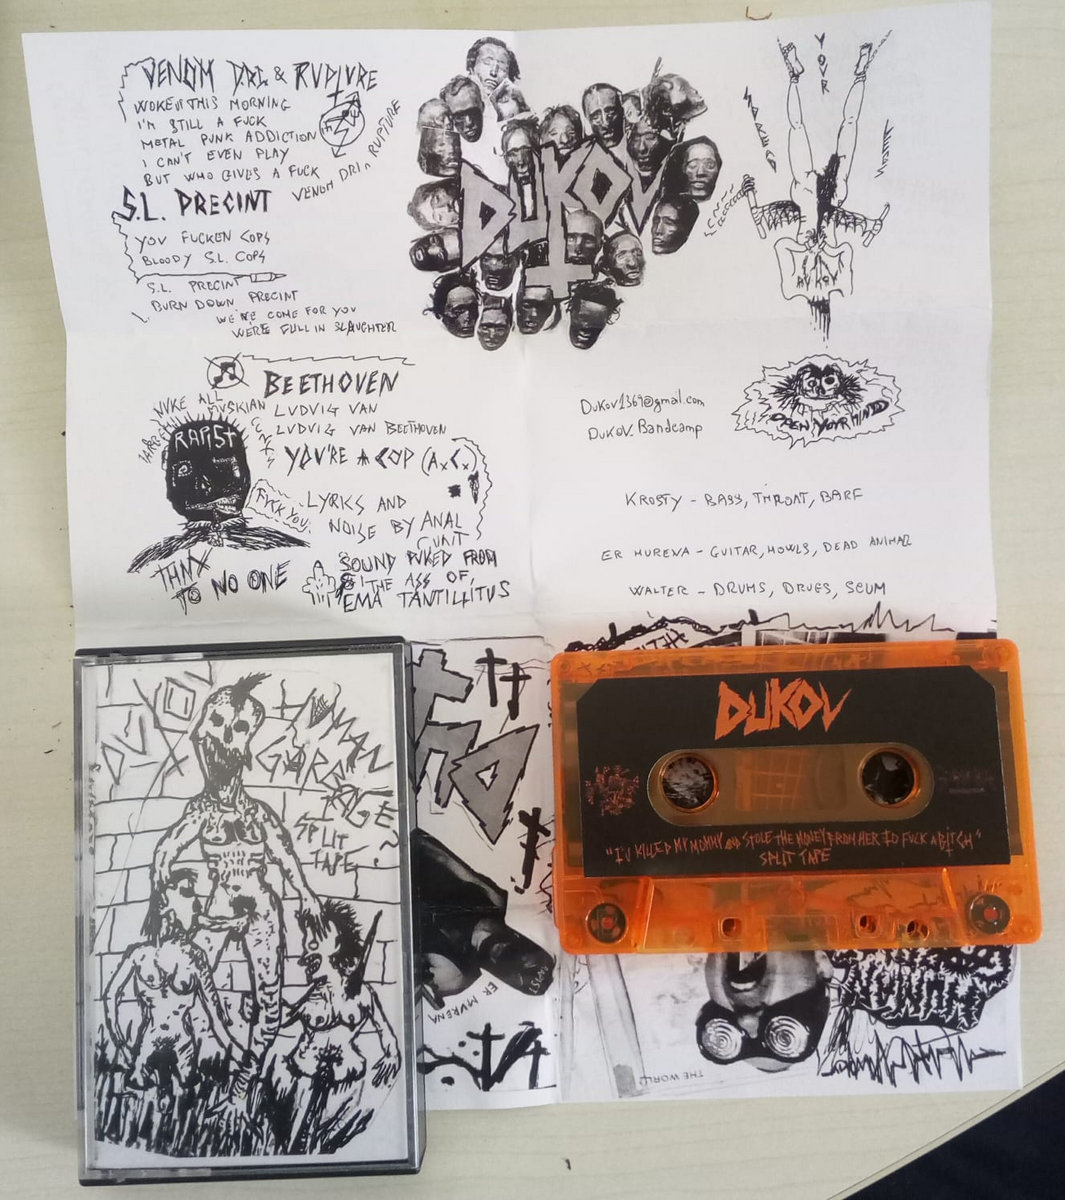 VENOM DRI & RUPTURE
WOKE UP THIS MORNING
I'M STILL A FUCK
METAL PUNK ADDICTION
I CAN'T EVEN PLAY
BUT WHO GIVES A FUCK
VENOM DRI RUPTURE
S.L. PRECINT
YOU FUCKEN COPS
BLOODY S.L. COPS
S.L. PRECINT
BURN DOWN PRECINT
WE'RE COME FOR YOU
WE'RE FULL IN SLAUGHTER
DUKOV
YOUR
DUKOV
BEETHOVEN
NUKE ALL
MUSKIAN
LUDVIG VAN
LUDVIG VAN BEETHOVEN
YOU'RE A COP (AxCx)
RAPIST
FUCK YOU
LYRICS AND
NOISE BY ANAL
CUNT
THNX
TO NO ONE
SOUND PUKED FROM
THE ASS OF,
EMA TANTILLITUS
Dukov1369@gmail.com
DUKOV. Bandcamp
OPEN YOUR MINDD
KROSTY - BASS, THROAT, BARF
ER MURENA - GUITAR, HOWLS, DEAD ANIMAL
WALTER - DRUMS, DRUGS, SCUM
DUKOV
HUMAN
GARBAGE
SPLIT
TAPE
ER MURENA
THE WORLD
DUKOV
"I'V KILLED MY MOMMY AND STOLE THE MONEY FROM HER TO FUCK A BITCH"
SPLIT TAPE